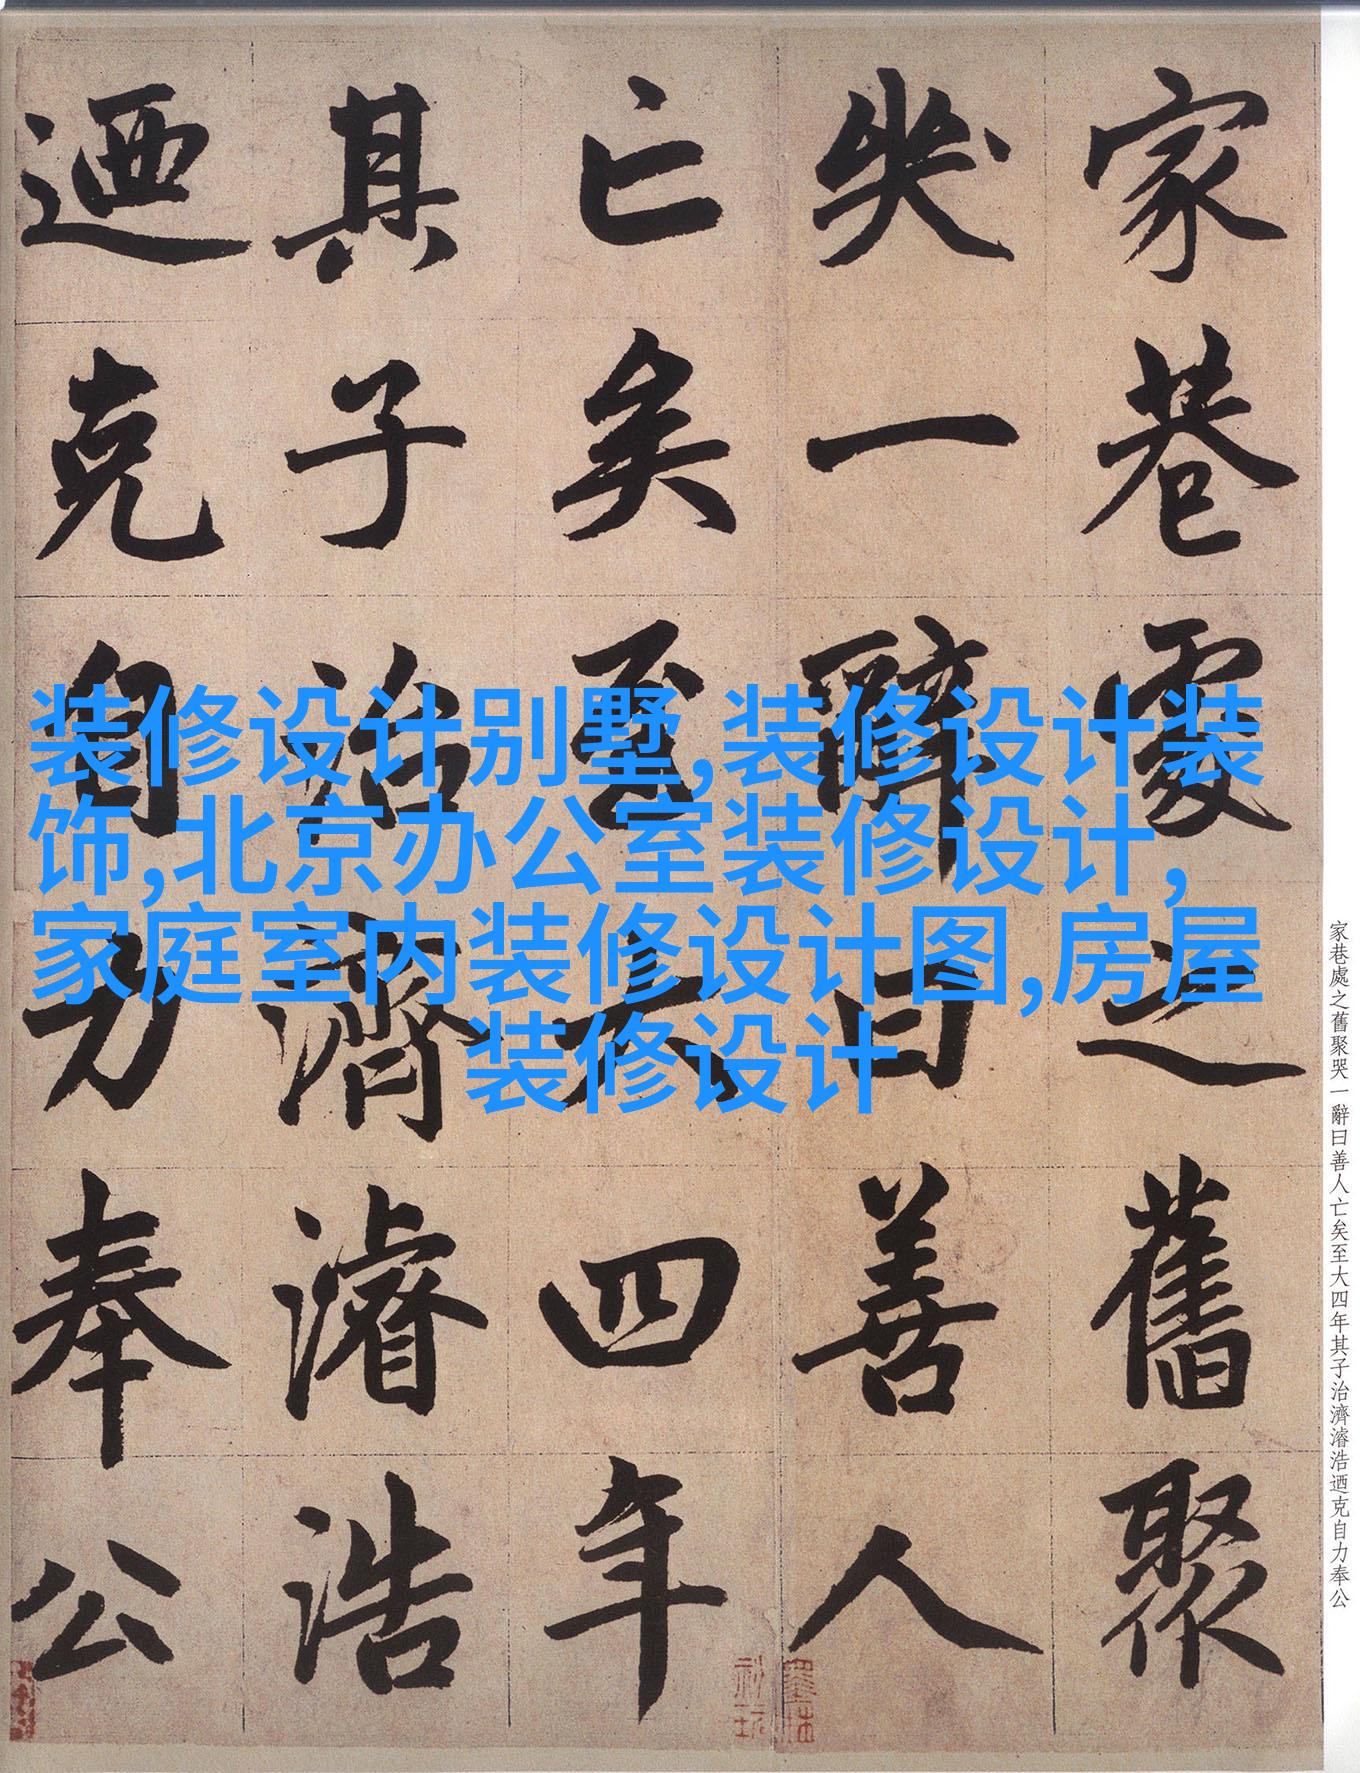 家巷處之舊聚
哭一辭曰善人
亡矣至大四年
其子治濟濬浩
迺克自力奉公
装修设计别墅,装修设计装
饰,北京办公室装修设计,
家庭室内装修设计图,房屋
装修设计
家巷處之舊聚哭一辭曰善人亡矣至大四年其子治濟濬浩迺克自力奉公